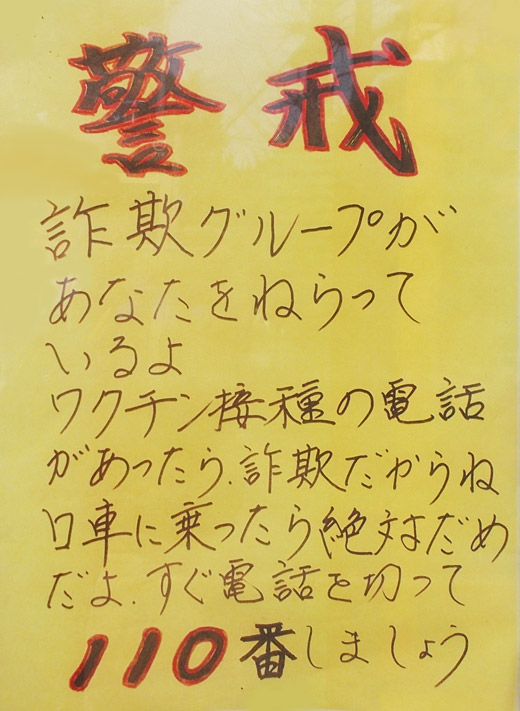 警戒
詐欺グループが
あなたをねらって
いるよ
ワクチン接種の電話
があったら、詐欺だからね
口車に乗ったら絶対だめ
だよ、すぐ電話を切って
110番しましょう